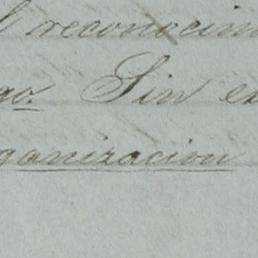 l reconocim
go. Sin ex
ganizacion